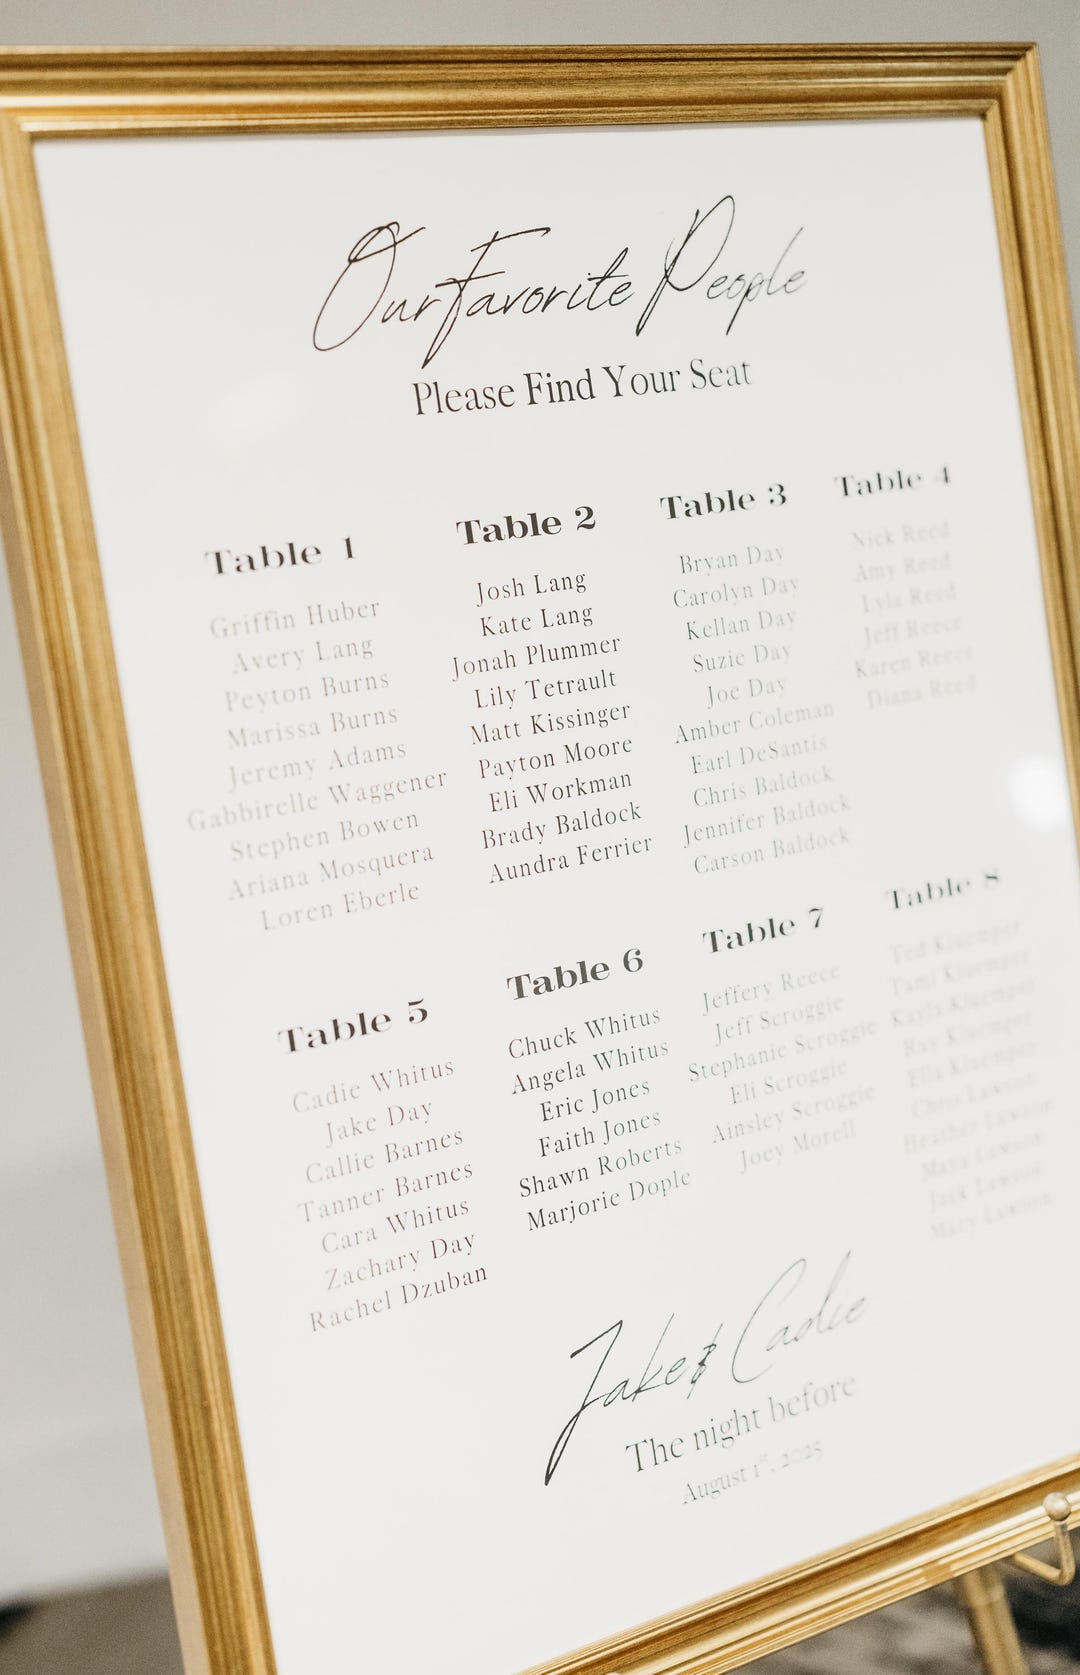 Our Favorite People
Please Find Your Seat
Table 1
Griffin Huber
Avery Lang
Peyton Burns
Marissa Burns
Jeremy Adams
Gabbirelle Waggener
Stephen Bowen
Ariana Mosquera
Loren Eberle
Table 2
Josh Lang
Kate Lang
Jonah Plummer
Lily Tetrault
Matt Kissinger
Payton Moore
Eli Workman
Brady Baldock
Aundra Ferrier
Table 3
Bryan Day
Carolyn Day
Kellan Day
Suzie Day
Joe Day
Amber Coleman
Earl DeSantis
Chris Baldock
Jennifer Baldock
Carson Baldock
Table 4
Nick Reed
Amy Reed
Lyla Reed
Jeff Reece
Karen Reece
Diana Reed
Table 5
Cadie Whitus
Jake Day
Callie Barnes
Tanner Barnes
Cara Whitus
Zachary Day
Rachel Dzuban
Table 6
Chuck Whitus
Angela Whitus
Eric Jones
Faith Jones
Shawn Roberts
Marjorie Dople
Table 7
Jeffery Reece
Jeff Scroggie
Stephanie Scroggie
Eli Scroggie
Ainsley Scroggie
Joey Morell
Table 8
Ted Kluemper
Tami Kluemper
Kayla Kluemper
Ray Kluemper
Ella Kluemper
Chris Lawson
Heather Lawson
Maya Lawson
Jack Lawson
Macy Lawson
Jake & Cadie
The night before
August 1st, 2025